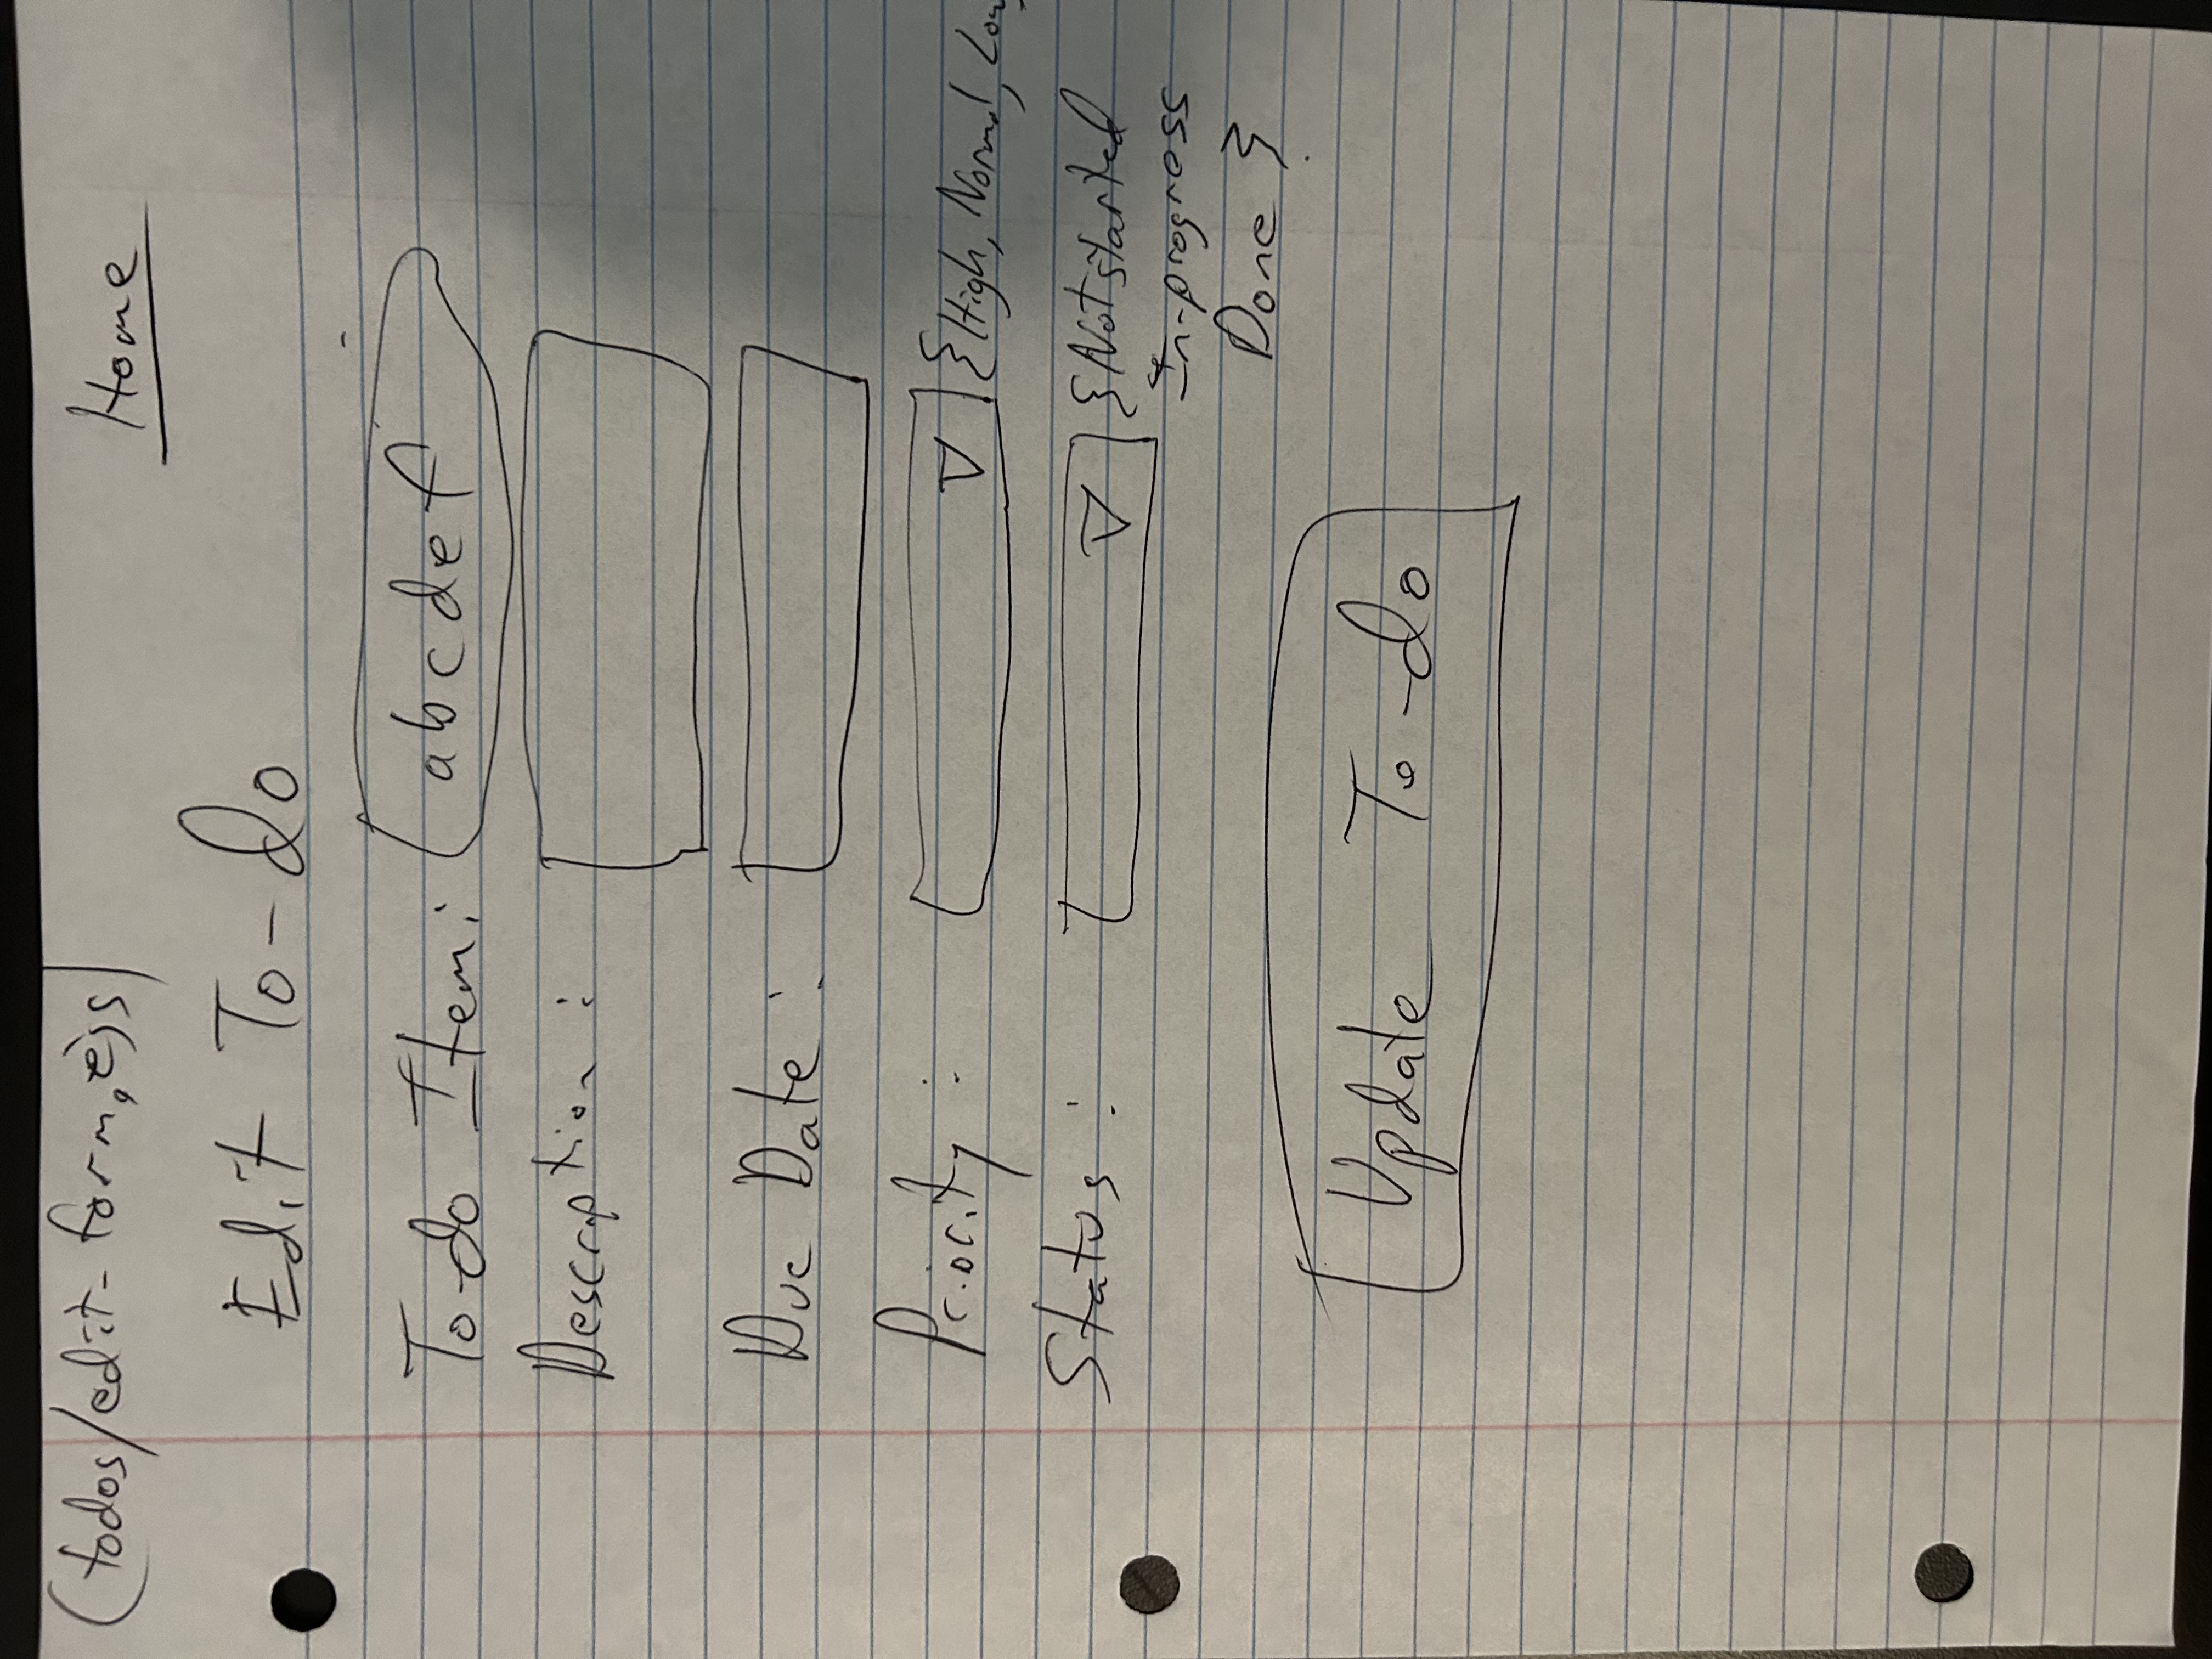 (todos/edit-form.ejs)
Home
Edit To-do
To-do Item: abcdef
Description:
Due Date:
Priority: {High, Normal, Low,
Status: {Not started
In-progress
Done }
Update To-do